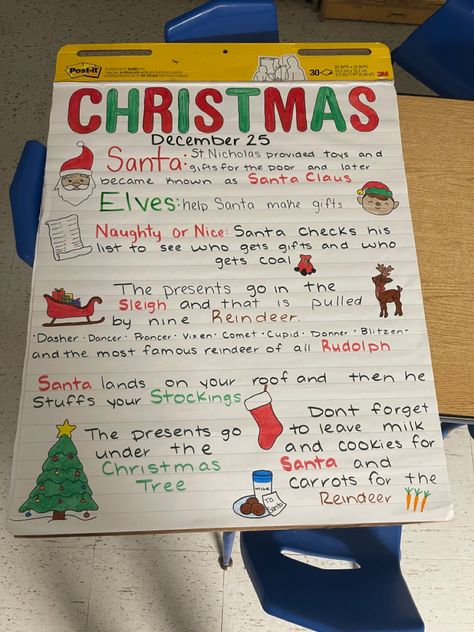 Post-it
30
3M
CHRISTMAS
December 25
Santa: St Nicholas provided toys and
gifts for the poor and later
became known as Santa Claus
Elves: help Santa make gifts
Naughty or Nice: Santa checks his
list to see who gets gifts and who
gets coal
The presents go in the
Sleigh and that is pulled
by nine Reindeer.
·Dasher·Dancer·Prancer·Vixen·Comet·Cupid·Donner·Blitzen·
and the most famous reindeer of all Rudolph
Santa lands on your roof and then he
Stuffs your Stockings
The presents go
under the
Christmas
Tree
Dont forget
to leave milk
and cookies for
Santa and
carrots for the
Reindeer
MILK
TO
Santa